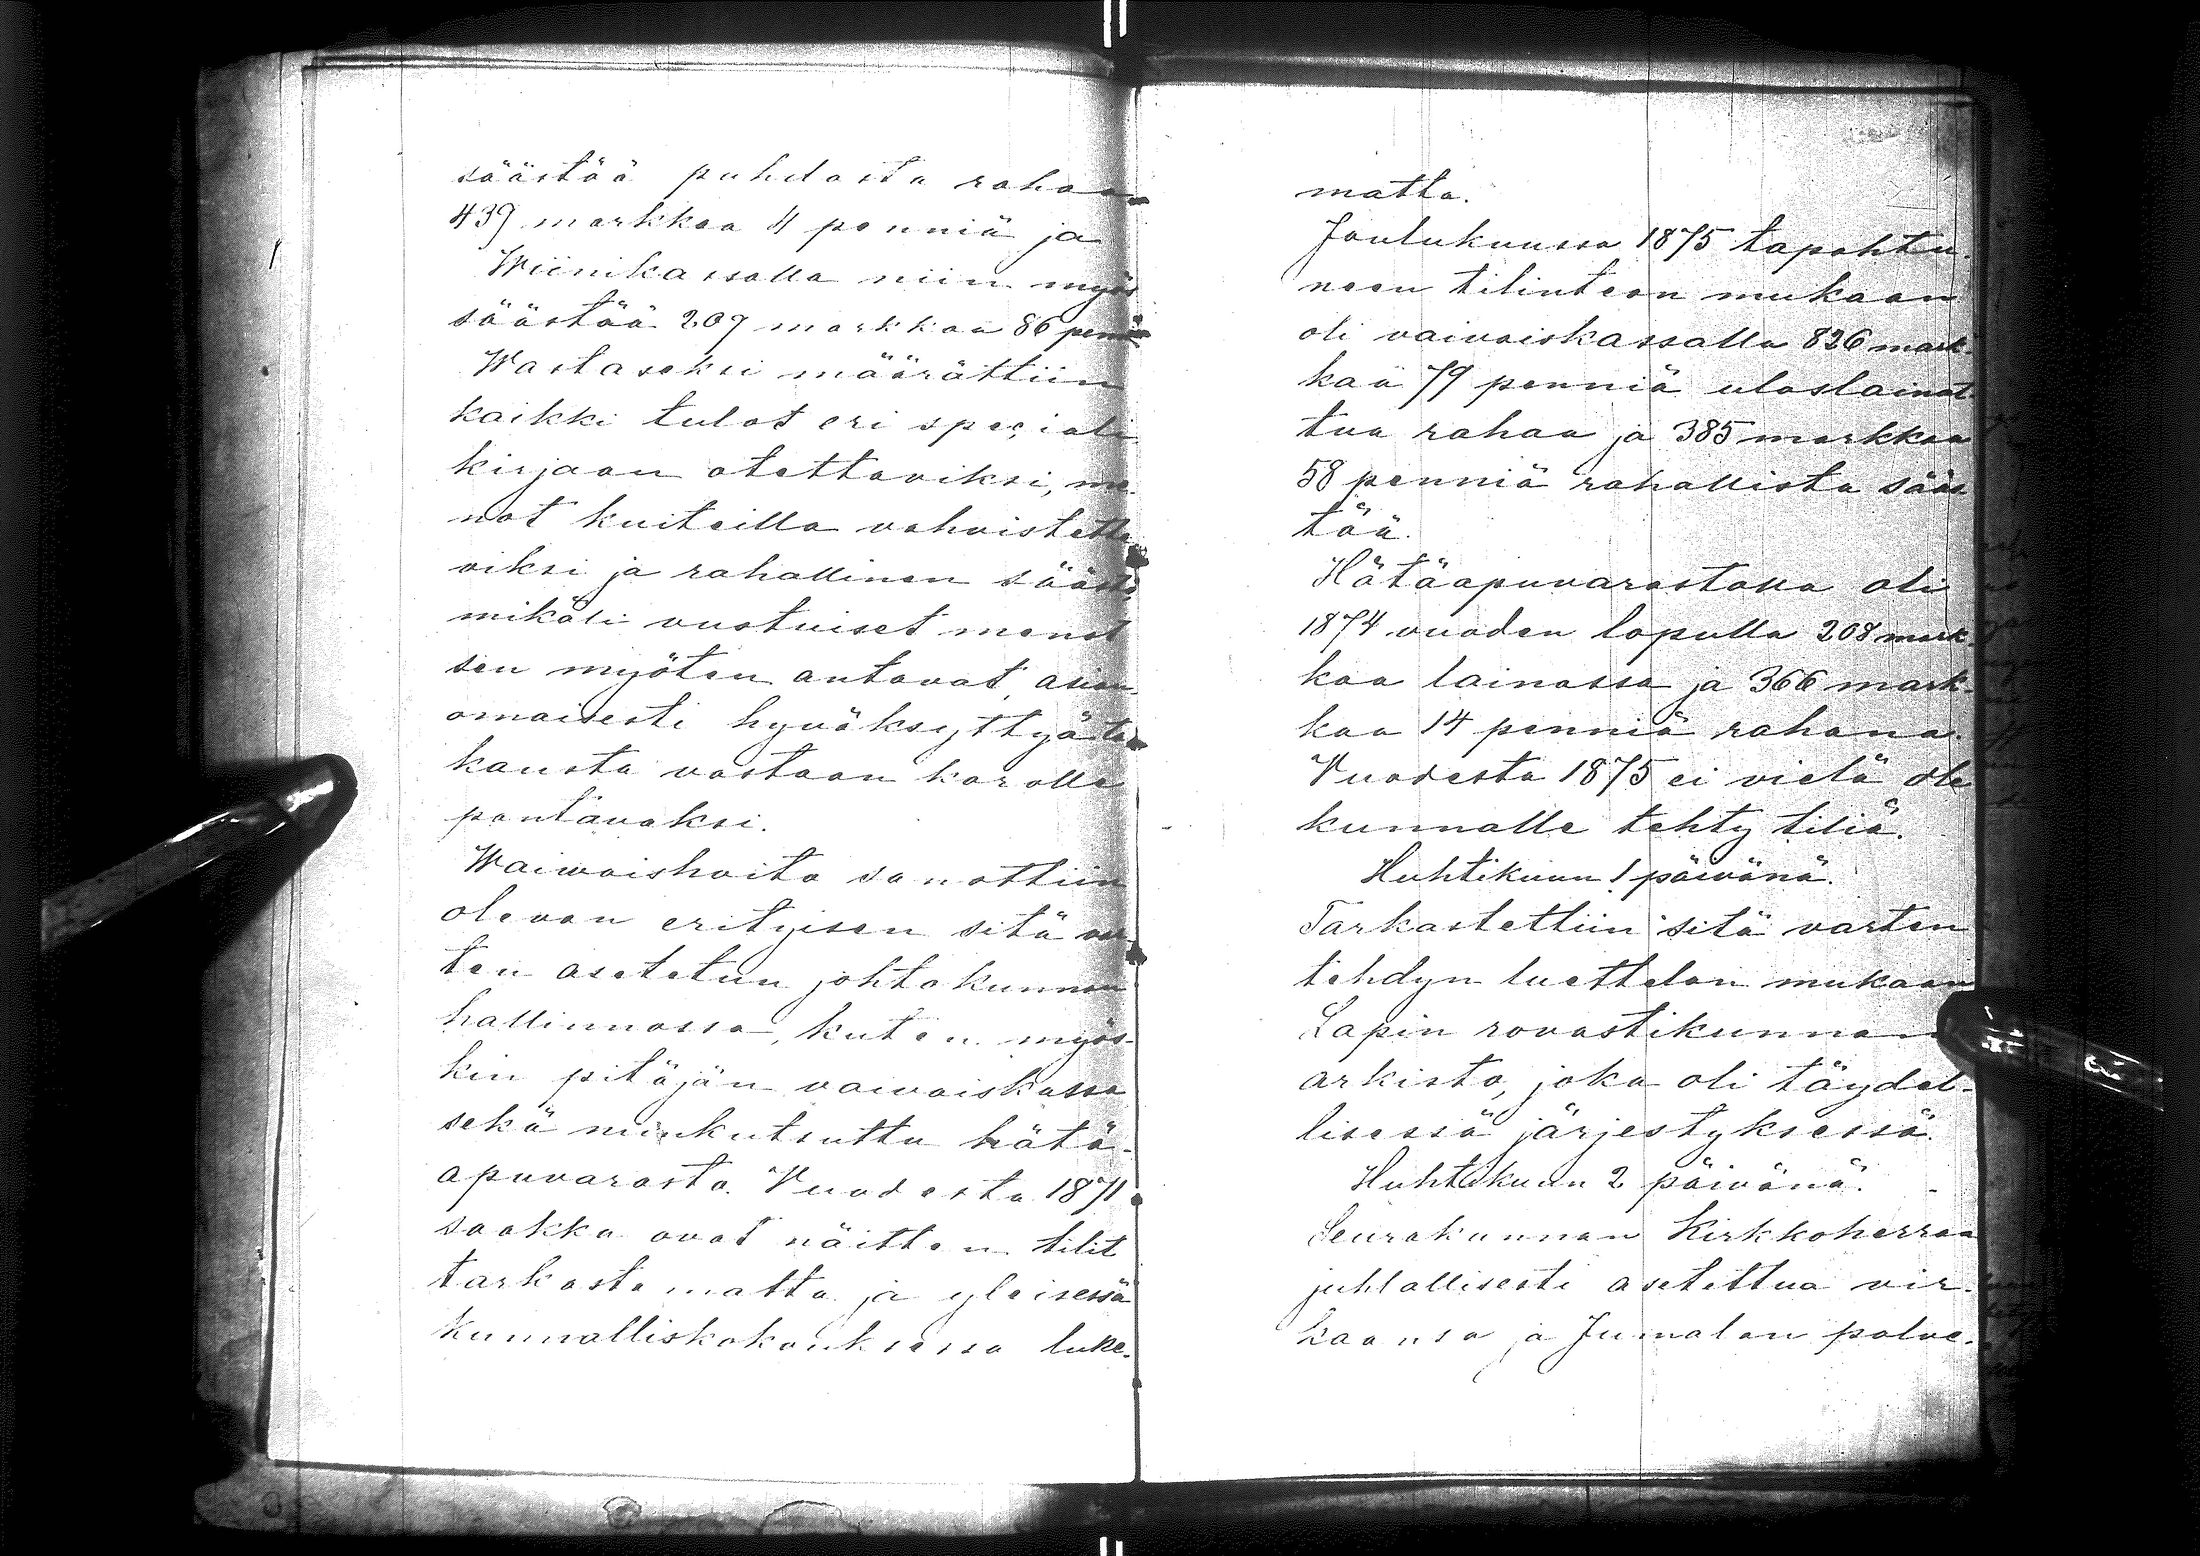 säästöä puhdasta rahaa
439 markkaa 4 penniä ja
Wiinikassalla niin myös
säästöä 209 markkaa 86 penniä
Wastaseksi määrättiin
kaikki tulot eri speciali
kirjaan otettaviksi, me-
not kuiteilla vahvistetta
viksi ja rahallinen säästö,
mikäli vuotuiset menot
sen myöten antavat, asian-
omaisesti hyväksyttyä ta
kausta vastaan korolle
pantavaksi.
Waiwaishoito sanottiin
olevan erityisen sitä var
ten asetetun johtokunnan
hallinnossa, kuten myös-
kin pitäjän vaivaiskassa
sekä niinkutsuttu hätä-
apuvarasto. Vuodesta 1871
saakka ovat näitten tilit
tarkastamatta ja yleisessä
Kunnalliskokouksessa luke-
matta.
Joulukuussa 1875 tapahtu-
neen tilinteon mukaan
oli vaivaiskassalla 826 mark-
kaa 79 penniä uloslainat-
tua rahaa ja 385 markkaa
58 penniä rahallista sääs
töä.
Hätäapuvarastossa oli
1874 vuoden lopulla 208 mark-
kaa lainassa ja 366 mark-
kaa 14 penniä rahana.
Vuodesta 1875 ei vielä ole
kunnalle tehty tiliä.
Huhtikuun 1 päivänä.
Tarkastettiin sitä varten
tehdyn luettelon mukaan
Lapin rovastikunnan
arkisto, joka oli täydel-
lisessä järjestyksessä.
Huhtikuun 2 päivänä.
Seurakunnan Kirkkoherraa
juhlallisesti asetettua vir-
kaansa ja Jumalan palve-